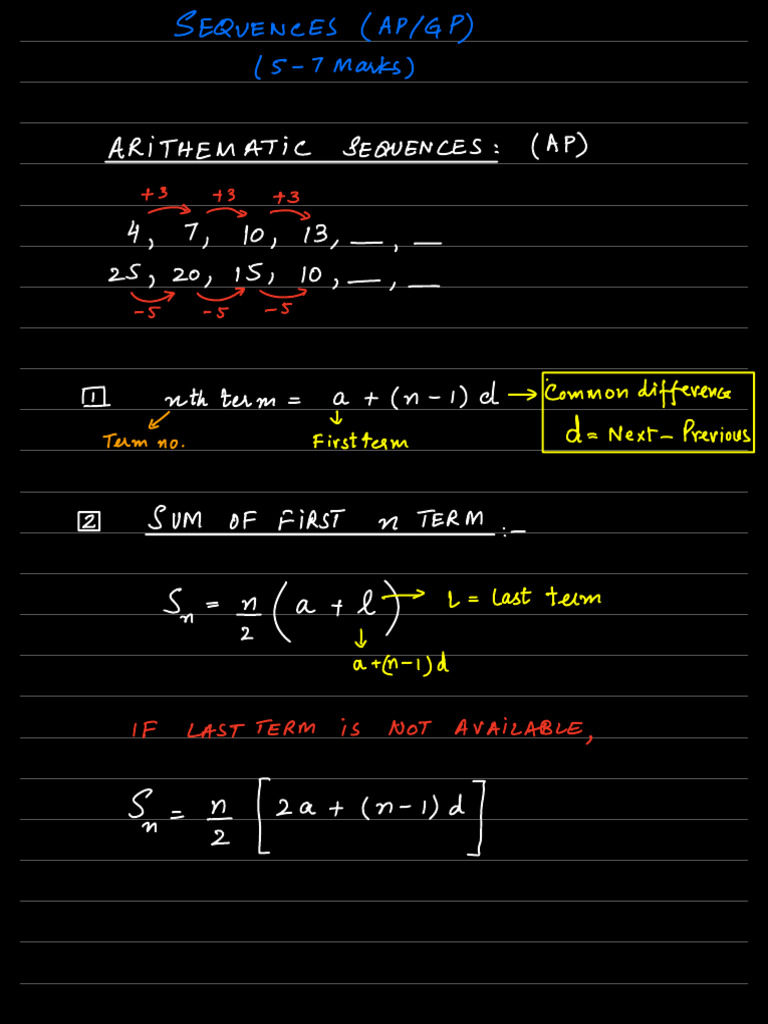 SEQUENCES (AP/GP)
(5-7 Marks)
ARITHEMATIC SEQUENCES: (AP)
+3 +3 +3
4, 7, 10, 13, __, __
25, 20, 15, 10, __, __
-5 -5 -5
1 nth term = a + (n-1) d → Common difference
Term no. First term d = Next - Previous
2 SUM OF FIRST n TERM :-
Sn = n/2 (a + l) → L = Last term
a+(n-1)d
IF LAST TERM IS NOT AVAILABLE,
Sn = n/2 [2a + (n-1)d]